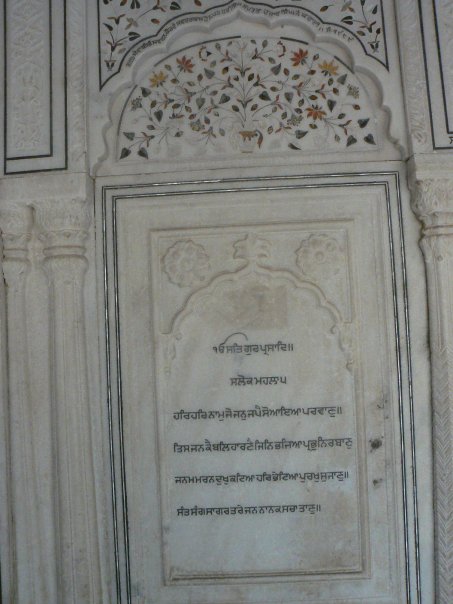 ੴ ਸਤਿਗੁਰਪ੍ਰਸਾਦਿ॥
ਸਲੋਕ ਮਹਲਾ ੫
ਹਰਿਹਰਿਨਾਮੁਜੋਜਨੁਜਪੈਸੋਆਇਆਪਰਵਾਣੁ॥
ਤਿਸਜਨਕੈਬਲਿਹਾਰਣੈਜਿਨਿਭਜਿਆਪ੍ਰਭੁਨਿਰਬਾਣੁ
ਜਨਮਮਰਨਦੁਖੁਕਟਿਆਹਰਿਭੇਟਿਆਪੁਰਖੁਸੁਜਾਣੁ॥
ਸੰਤਸੰਗਿਸਾਗਰਤਰੇਜਨਨਾਨਕਸਚਾਤਾਣੁ॥